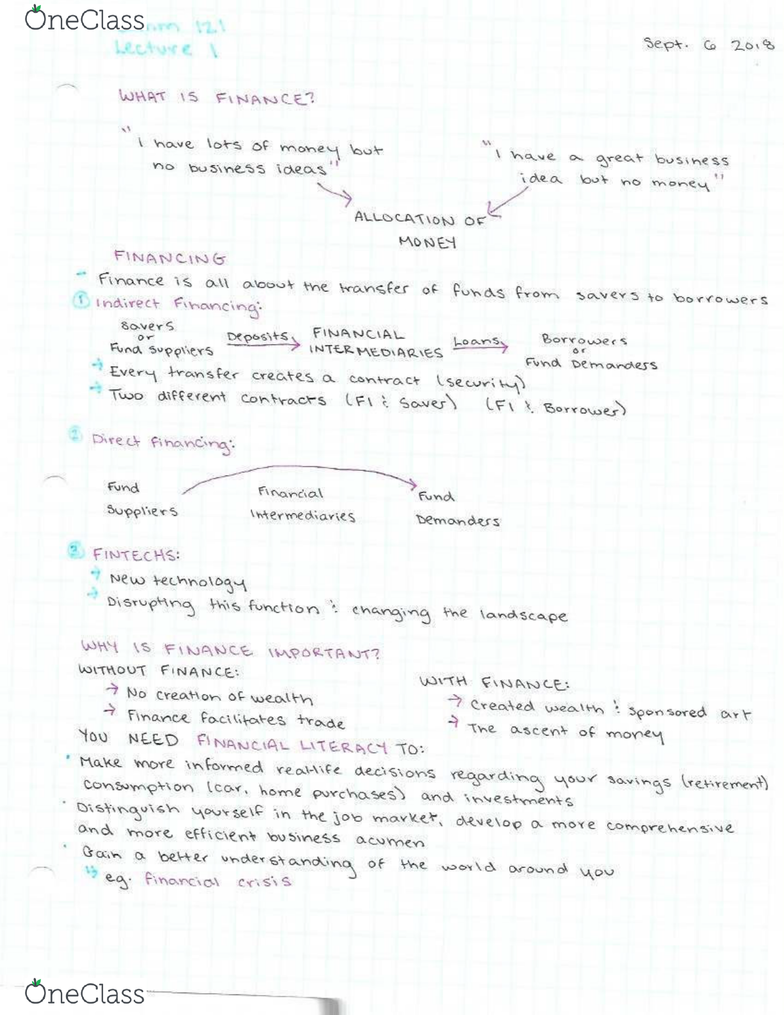 OneClass
121
Lecture 1
Sept. 6 2018
WHAT IS FINANCE?
"I have lots of money but
no business ideas"
"I have a great business
idea but no money"
ALLOCATION OF
MONEY
FINANCING
- Finance is all about the transfer of funds from savers to borrowers
① Indirect Financing:
Savers
or
Fund Suppliers
Deposits
FINANCIAL
INTERMEDIARIES
Loans
Borrowers
or
Fund Demanders
→ Every transfer creates a contract (security)
→ Two different contracts (FI & Saver) (FI & Borrower)
② Direct Financing:
Fund
Suppliers
Financial
Intermediaries
Fund
Demanders
③ FINTECHS:
→ New technology
→ Disrupting this function & changing the landscape
WHY IS FINANCE IMPORTANT?
WITHOUT FINANCE:
→ No creation of wealth
→ Finance facilitates trade
WITH FINANCE:
→ Created wealth & sponsored art
→ The ascent of money
YOU NEED FINANCIAL LITERACY TO:
• Make more informed real-life decisions regarding your savings (retirement)
consumption (car, home purchases) and investments
• Distinguish yourself in the job market, develop a more comprehensive
and more efficient business acumen
• Gain a better understanding of the world around you
↳ eg. financial crisis
OneClass